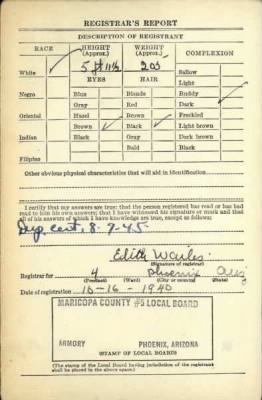 REGISTRAR'S REPORT
DESCRIPTION OF REGISTRANT
RACE HEIGHT (Approx.) WEIGHT (Approx.) COMPLEXION
5 ft 11½ 203
White ✓ Sallow
EYES HAIR Light
Negro Blue Blonde Ruddy
Gray Red Dark ✓
Oriental Hazel Brown Freckled
Brown ✓ Black ✓ Light brown
Indian Black Gray Dark brown
Bald Black
Filipino
Other obvious physical characteristics that will aid in identification
I certify that my answers are true; that the person registered has read or has had
read to him his own answers; that I have witnessed his signature or mark and that
all of his answers of which I have knowledge are true, except as follows:
Dup. cert. 8-7-45
Edith Wailes
(Signature of registrar)
Registrar for 4 Phoenix Ariz
(Precinct) (Ward) (City or county) (State)
Date of registration 10-16-1940
MARICOPA COUNTY #5 LOCAL BOARD
ARMORY PHOENIX, ARIZONA
(STAMP OF LOCAL BOARD)
(The stamp of the Local Board having jurisdiction of the registrant
shall be placed in the above space.)